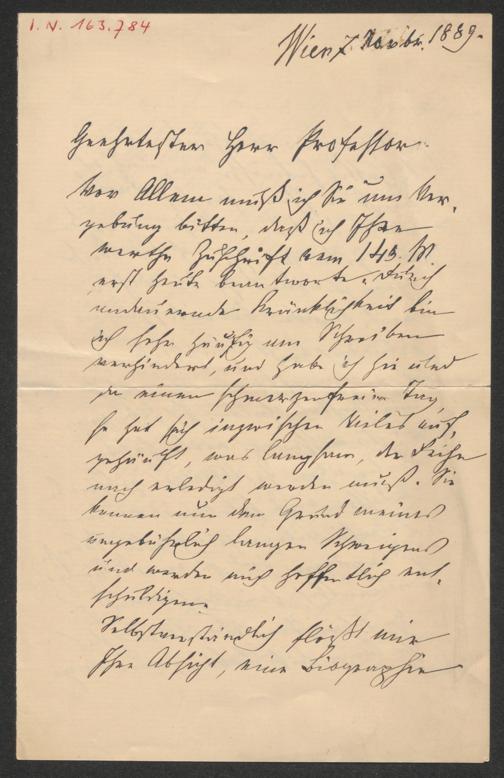 I. N. 163.784
Wien 7. Novbr. 1889.
Geehrtester Herr Professor
Vor Allem muß ich Sie um Ver-
gebung bitten, daß ich Ihre
werthe Zuschrift vom 14. v. M.
erst heute beantworte. Durch
andauernde Kränklichkeit bin
ich sehr häufig am Schreiben
verhindert, und habe ich hie und
da einen schmerzenfreien Tag
so hat sich inzwischen Vieles auf-
gehäuft, was langsam, der Reihe
nach erledigt werden muß. Sie
kennen nun den Grund meines
ungebührlich langen Schweigens
und werden mich hoffentlich ent-
schuldigen.
Selbstverständlich flößt mir
Ihre Absicht, eine Biographie